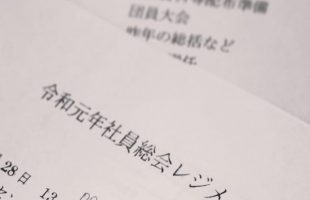 配布準備
団員大会
昨年の総括など
令和元年社員総会レジメ
28日 13